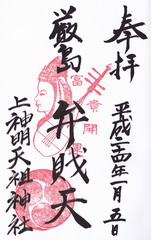 奉拝
平成二十四年一月五日
厳島
弁財天
富貴開運
上神明天祖神社